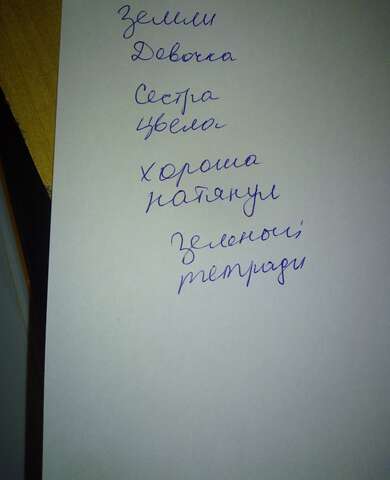 Земли
Девочка
Сестра
Цвела
Хороша
натянул
Зеленый
тетради